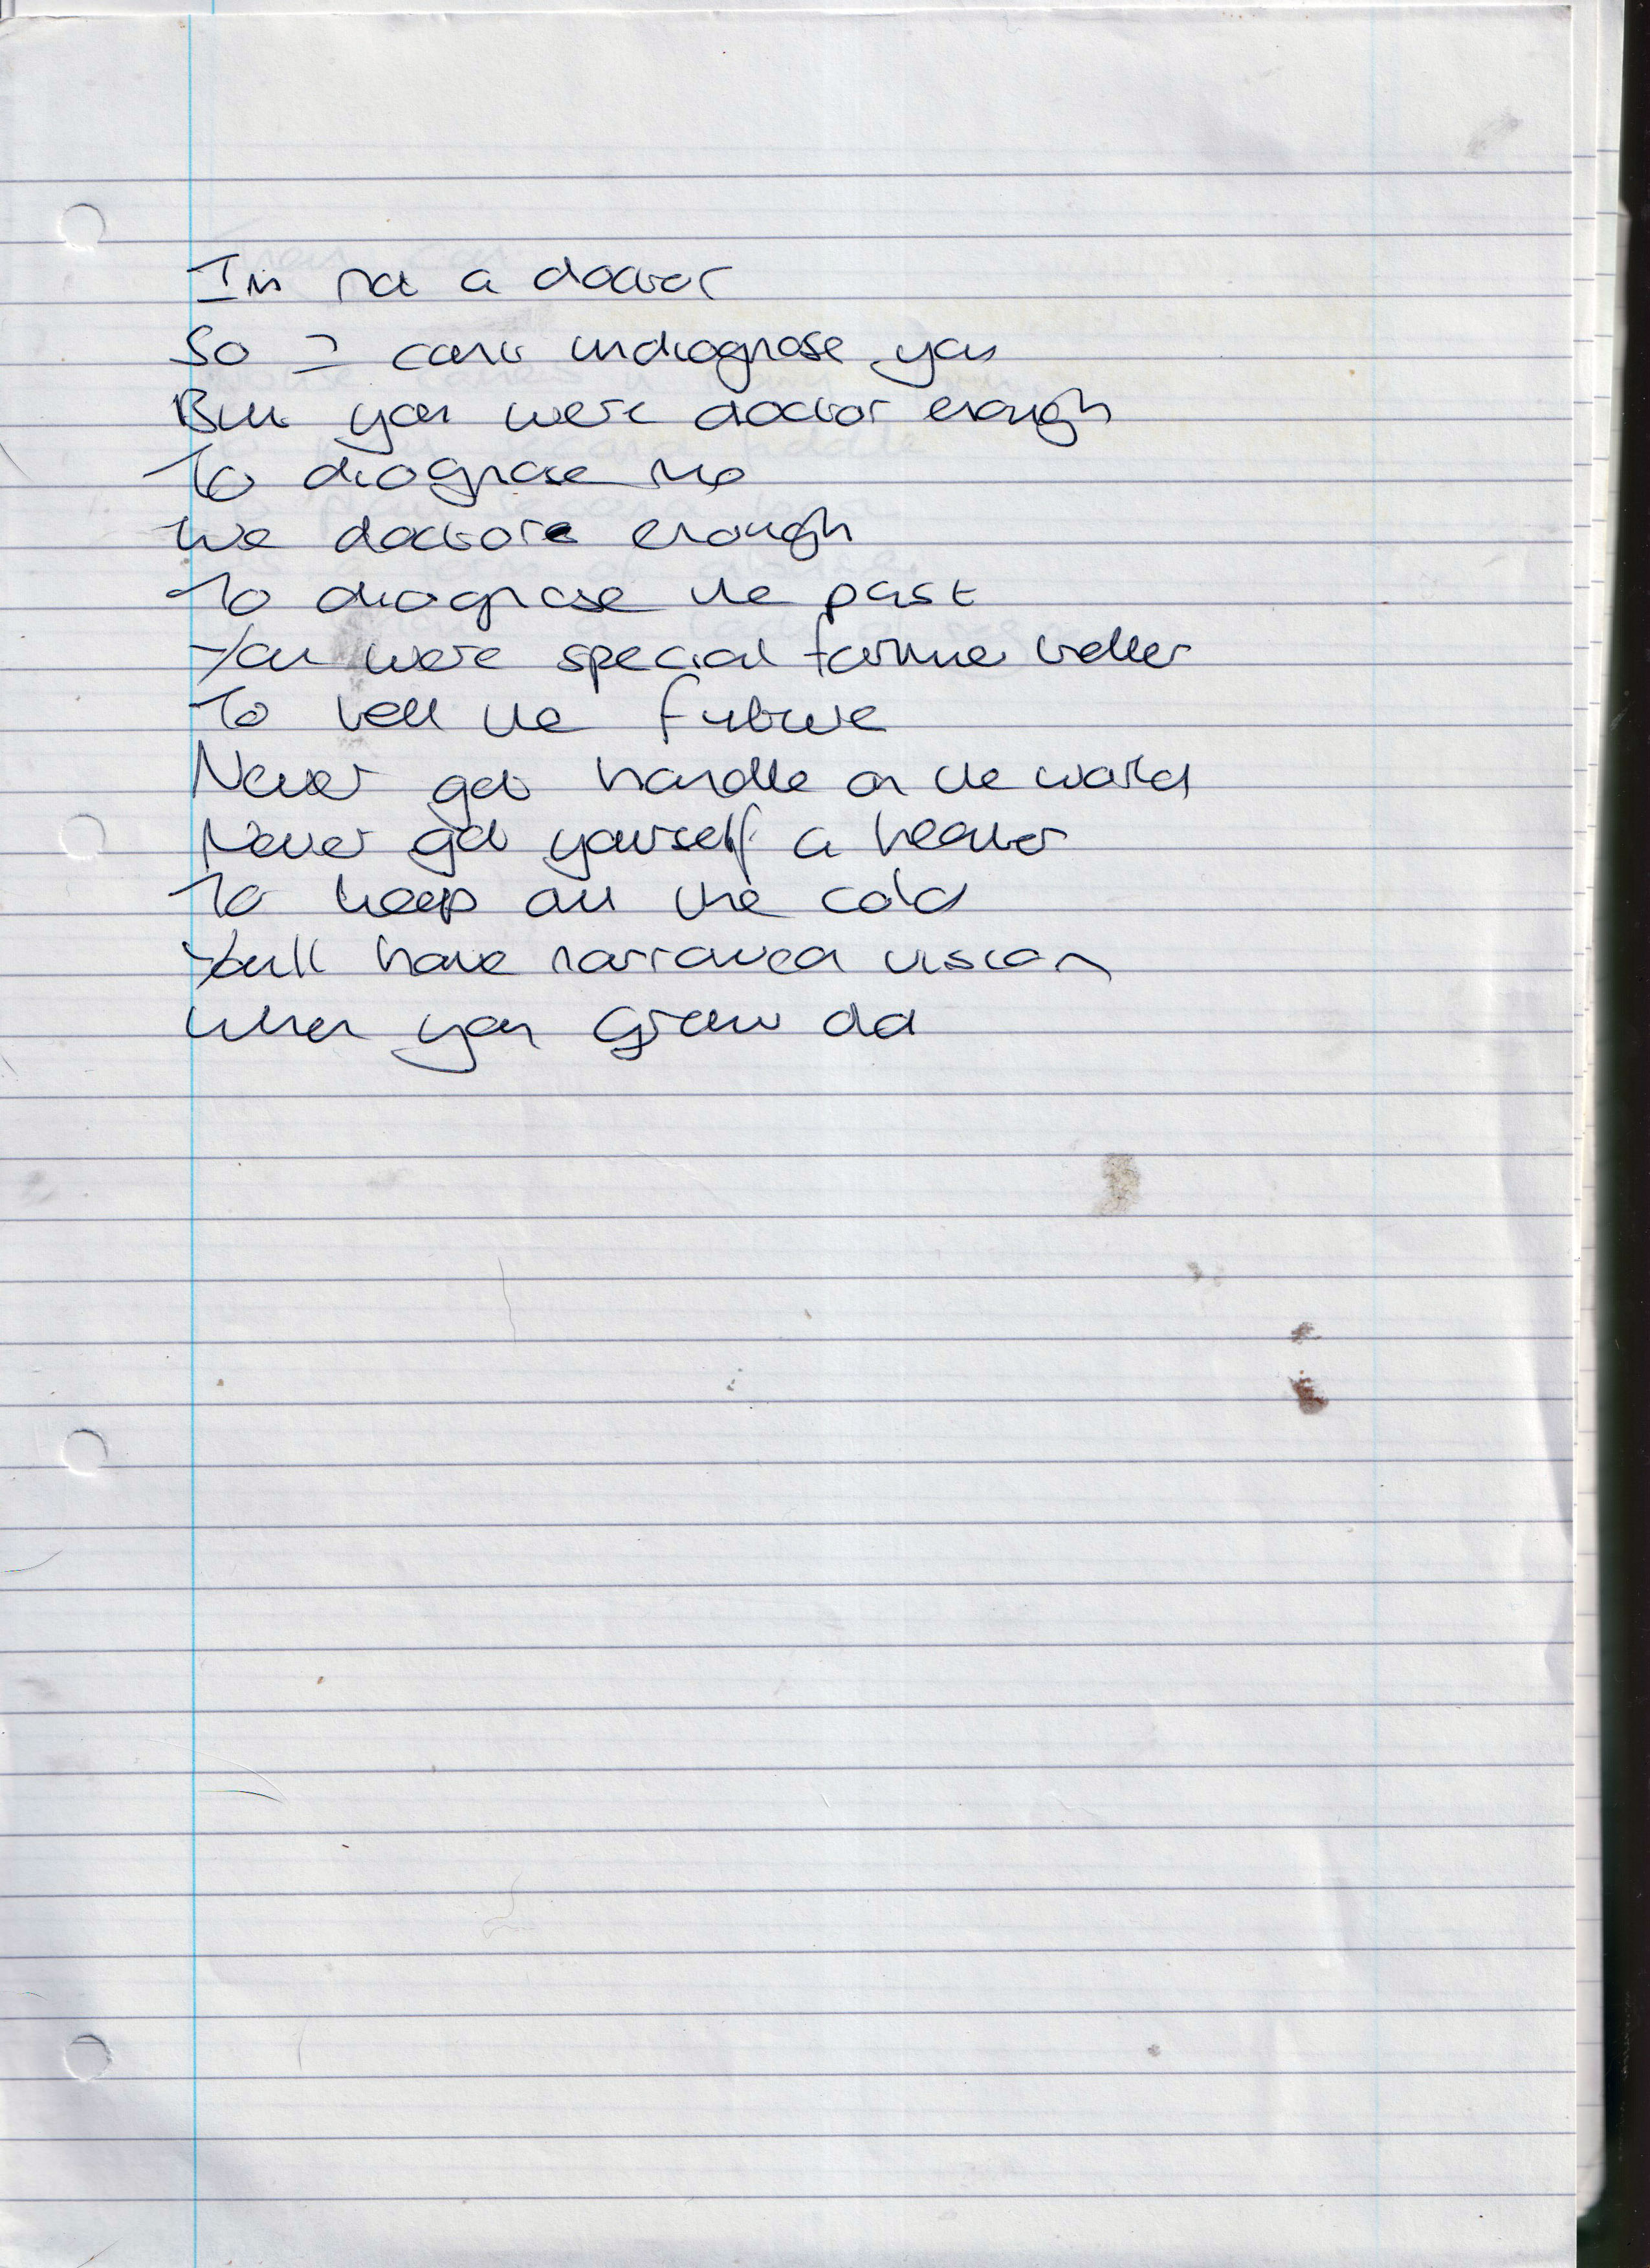 Im not a doctor
So I cant undiagnose you
But you were doctor enough
To diagnose me
We doctors enough
To diagnose the past
You were special fortune teller
To tell the future
Never got handle on the world
Never got yourself a heater
To keep out the cold
Youll have narrowed vision
When you grow old